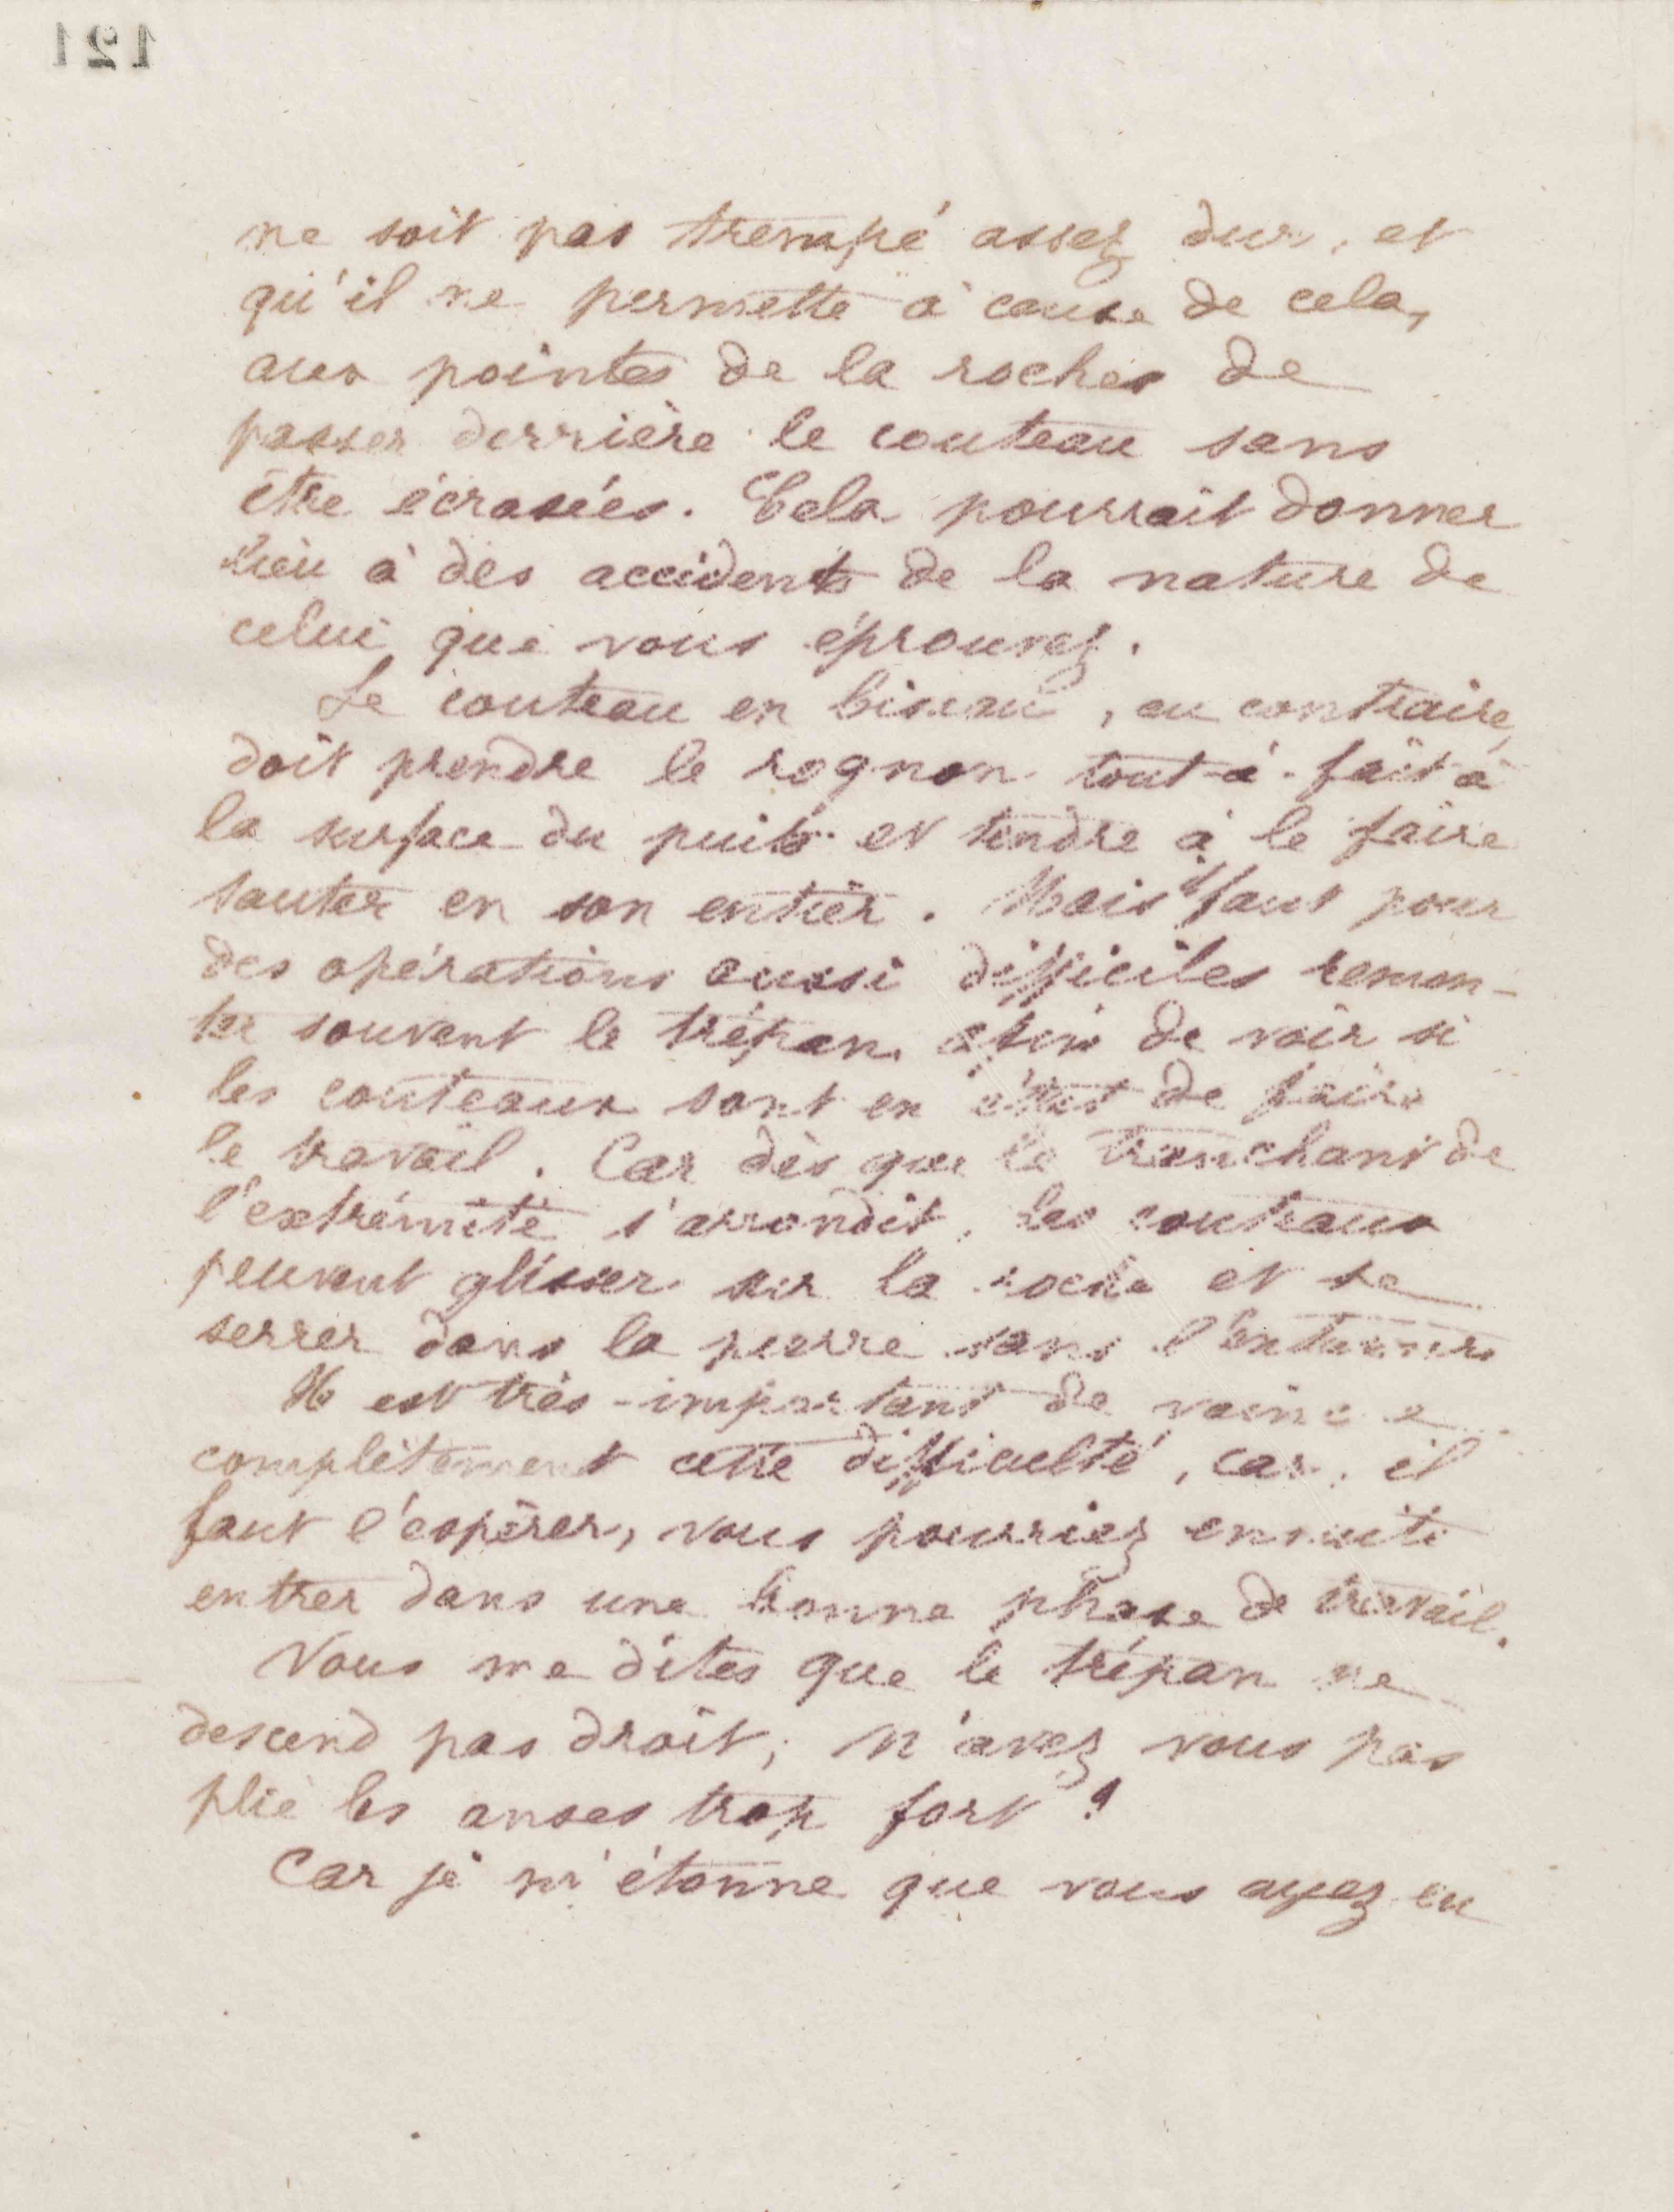 121
ne soit pas trempé assez dur, et
qu'il ne permette à cause de cela,
aux pointes de la roches de
passer derrière le couteau sans
être écrasées. Cela pourrait donner
lieu à des accidents de la nature de
celui que vous éprouvez.
Le couteau en biseau, au contraire,
doit prendre le rognon tout-à-fait à
la surface du puits et tendre à le faire
sauter en son entier. Mais il faut pour
des opérations aussi difficiles remon-
ter souvent le trépan afin de voir si
les couteaux sont en état de faire
le travail. Car dès que le tranchant de
l'extrémité s'arrondit, les couteaux
peuvent glisser sur la roche et se
serrer dans la pierre sans l'entamer
Il est très-important de vaincre
complètement cette difficulté, car, il
faut l'espérer, vous pourriez ensuite
entrer dans une bonne phase de travail.
Vous me dites que le trépan ne
descend pas droit; n'avez vous pas
plié les anses trop fort ?
Car je m'étonne que vous ayez eu